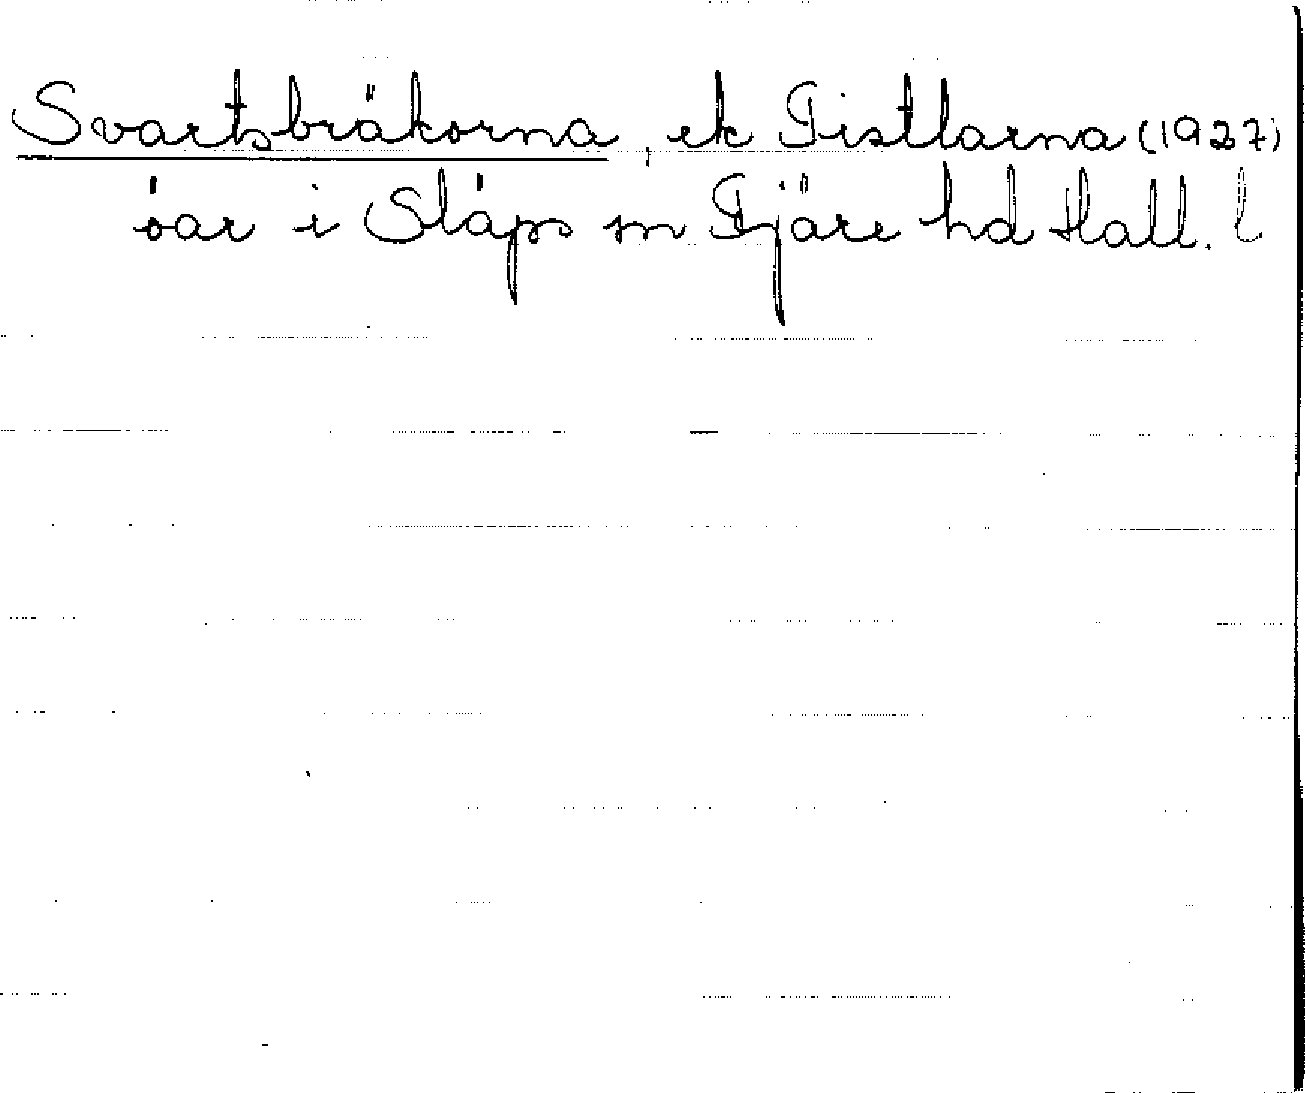 Svartsbräkorna, ek Tistlarna (1927)
öar i Släps sn Fjäre hd Hall. l.